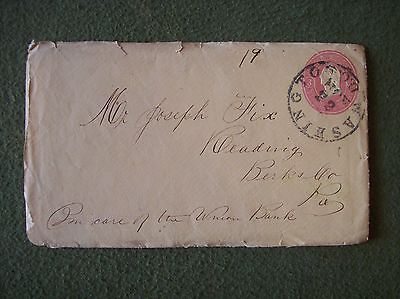 19
WASHINGTO
Mr Joseph Fix
Reading
Berks Co
Pa
In care of the Union Bank